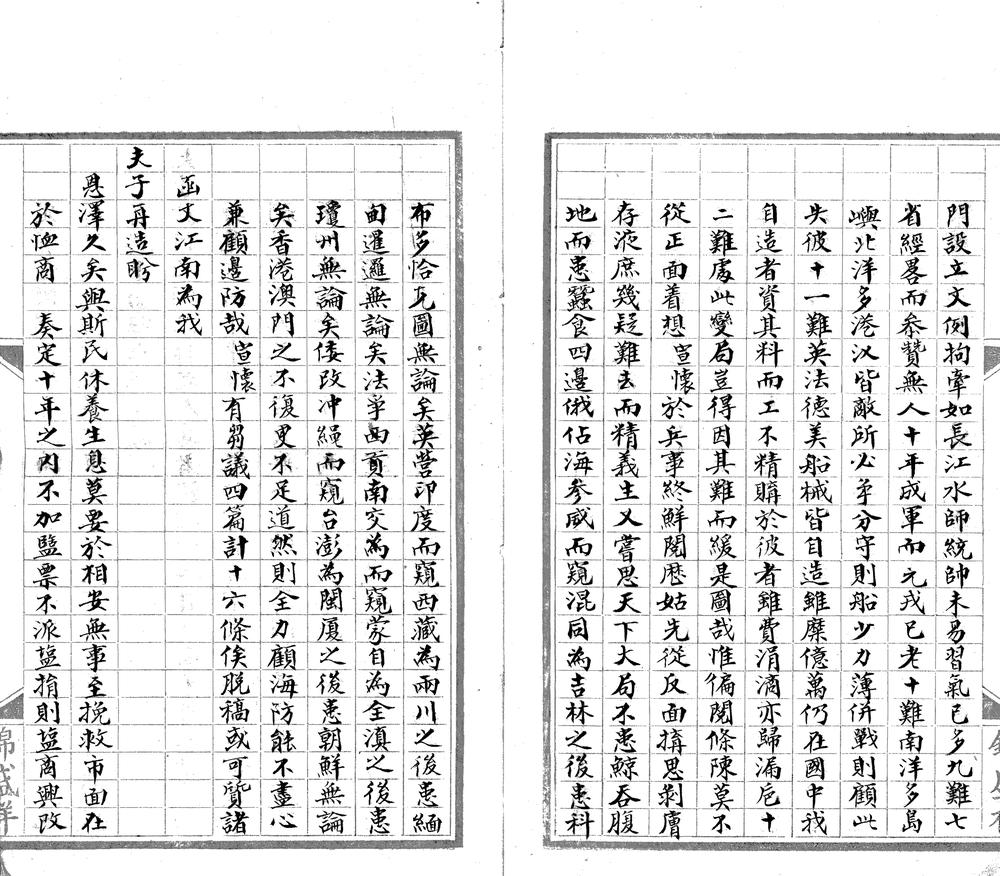 門設立文例拘牽如長江水師統帥未易習氣已多九難七
省經畧而叅贊無人十年成軍而元戎已老十難南洋多島
嶼北洋多港汊皆敵所必爭分守則船少力薄併戰則顧此
失彼十一難英法德美船械皆自造雖糜億萬仍在國中我
自造者資其料而工不精購於彼者雖費涓滴亦歸漏巵十
二難處此變局豈得因其難而緩是圖哉惟徧閱條陳莫不
從正面着想宣懷於兵事終鮮閱歷姑先從反面揣思剝膚
存液庶幾疑難去而精義生又嘗思天下大局不患鯨吞腹
地而患蠶食四邊俄佔海參威而窺混同為吉林之後患科
布多恰克圖無論矣英營印度而窺西藏為兩川之後患緬
甸暹邏無論矣法爭西貢南交為而窺蒙自為全滇之後患
瓊州無論矣倭改冲繩而窺台澎為閩厦之後患朝鮮無論
矣香港澳門之不復更不足道然則全力顧海防能不盡心
兼顧邊防哉宣懷有芻議四篇計十六條俟脱稿或可質諸
函丈江南為我
夫子再造盼
恩澤久矣與斯民休養生息莫要於相安無事至挽救市面在
於恤商 奏定十年之內不加鹽票不派鹽捐則鹽商興改